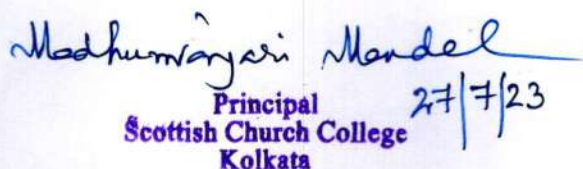 Madhumanjari Mandal
27/7/23
Principal
Scottish Church College
Kolkata